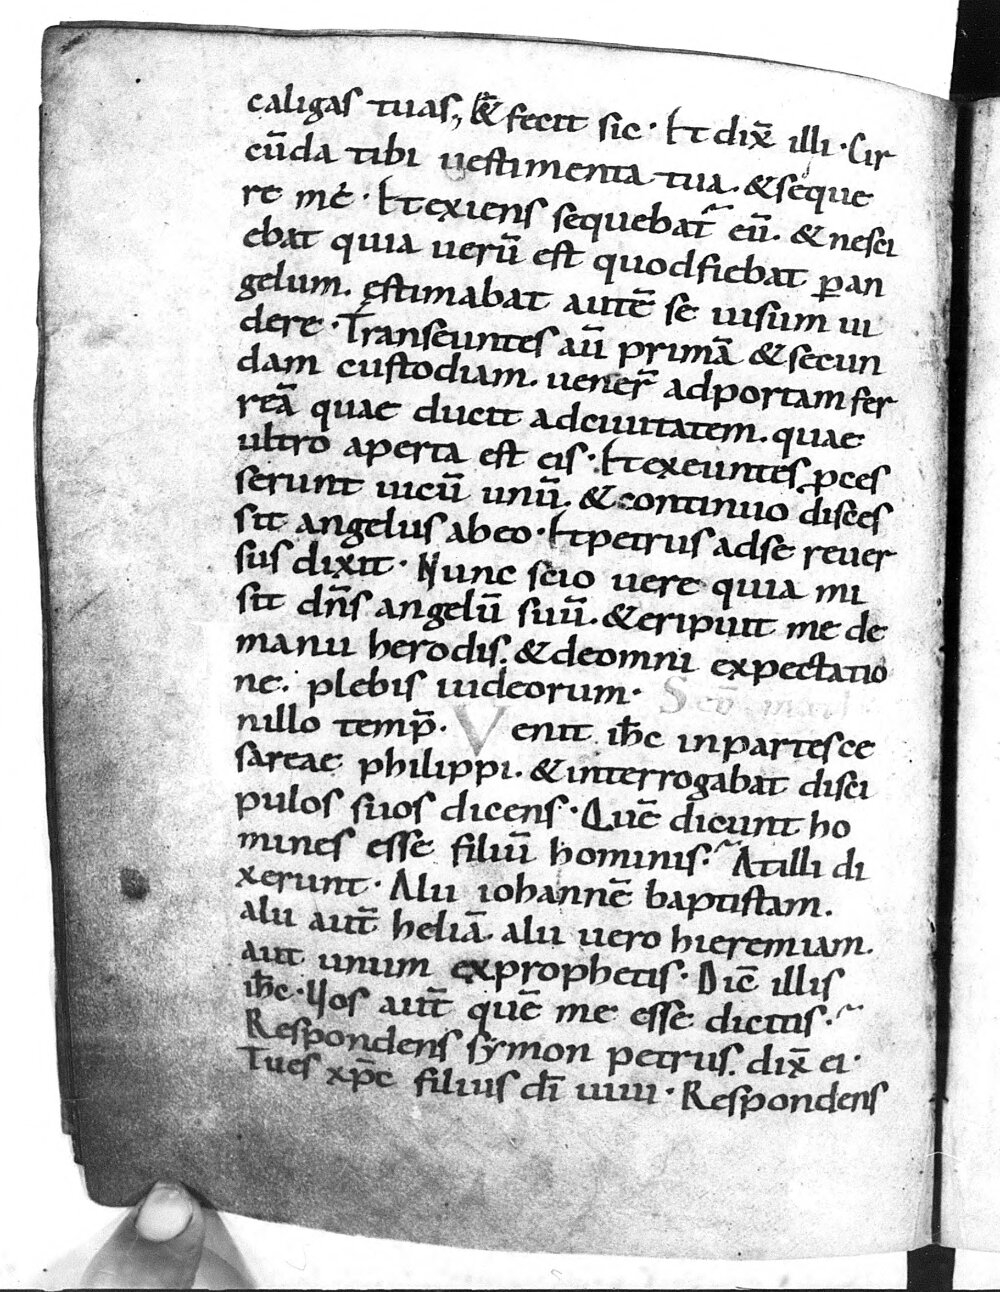 caligas tuas, & fecit sic. Et dix̄ illi. Cir
cūda tibi uestimenta tua. & seque
re me. Et exiens sequebat̄ eū. & nesci
ebat quia uerū est quod fiebat ꝑ an
gelum. ęstimabat autē se uisum ui
dere. Transeuntes aū primā & secun
dam custodiam. uener̄ ad portam fer
reā quae ducit ad ciuitatem. quae
ultro aperta est eis. Et exeuntes ꝓces
serunt uicū unū. & continuo disces
sit angelus ab eo. Et petrus ad se reuer
sus dixit. Nunc scio uere quia mi
sit dn̄s angelū suū. & eripuit me de
manu herodis. & de omni expectatio
ne. plebis iudeorum. Scđ̄m
nillo temp̄. Venit ih̄c in partes ce
sareae philippi. & interrogabat disci
pulos suos dicens. Quē dicunt ho
mines esse filiū hominis. At illi di
xerunt. Alii iohannē baptistam.
alii aut̄ heliā. alii uero hieremiam.
aut unum ex prophetis. Dic̄ illis
ih̄c. Uos aut̄ quē me esse dicitis.
Respondens symon petrus. dix̄ ei.
Tu es xp̄c filius dī uiui. Respondens